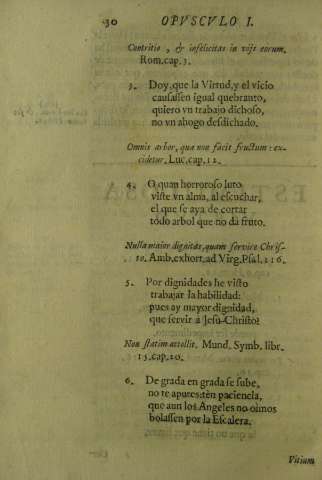 30 OPVSCVLO I.
Contritio, & infelicitas in vijs eorum.
Rom.cap.3.
3. Doy, que la Virtud, y el vicio
causassen igual quebranto,
quiero vn trabajo dichoso,
no vn ahogo desdichado.
Omnis arbor, quæ non facit fructum: ex-
cidetur. Luc.cap.12.
4. O quan horroroso luto
viste vn alma, al escuchar,
el que se aya de cortar
todo arbol que no dà fruto.
Nulla maior dignitas, quam servire Chris-
to. Amb.exhort.ad Virg.Psal.116.
5. Por dignidades he visto
trabajar la habilidad:
pues ay mayor dignidad,
que servir à Jesu-Christo?
Non statim attollit. Mund. Symb. libr.
15.cap.20.
6. De grada en grada se sube,
no te apures: tèn paciencia,
que aun los Angeles no oímos
bolassen por la Escalera.
Vitium